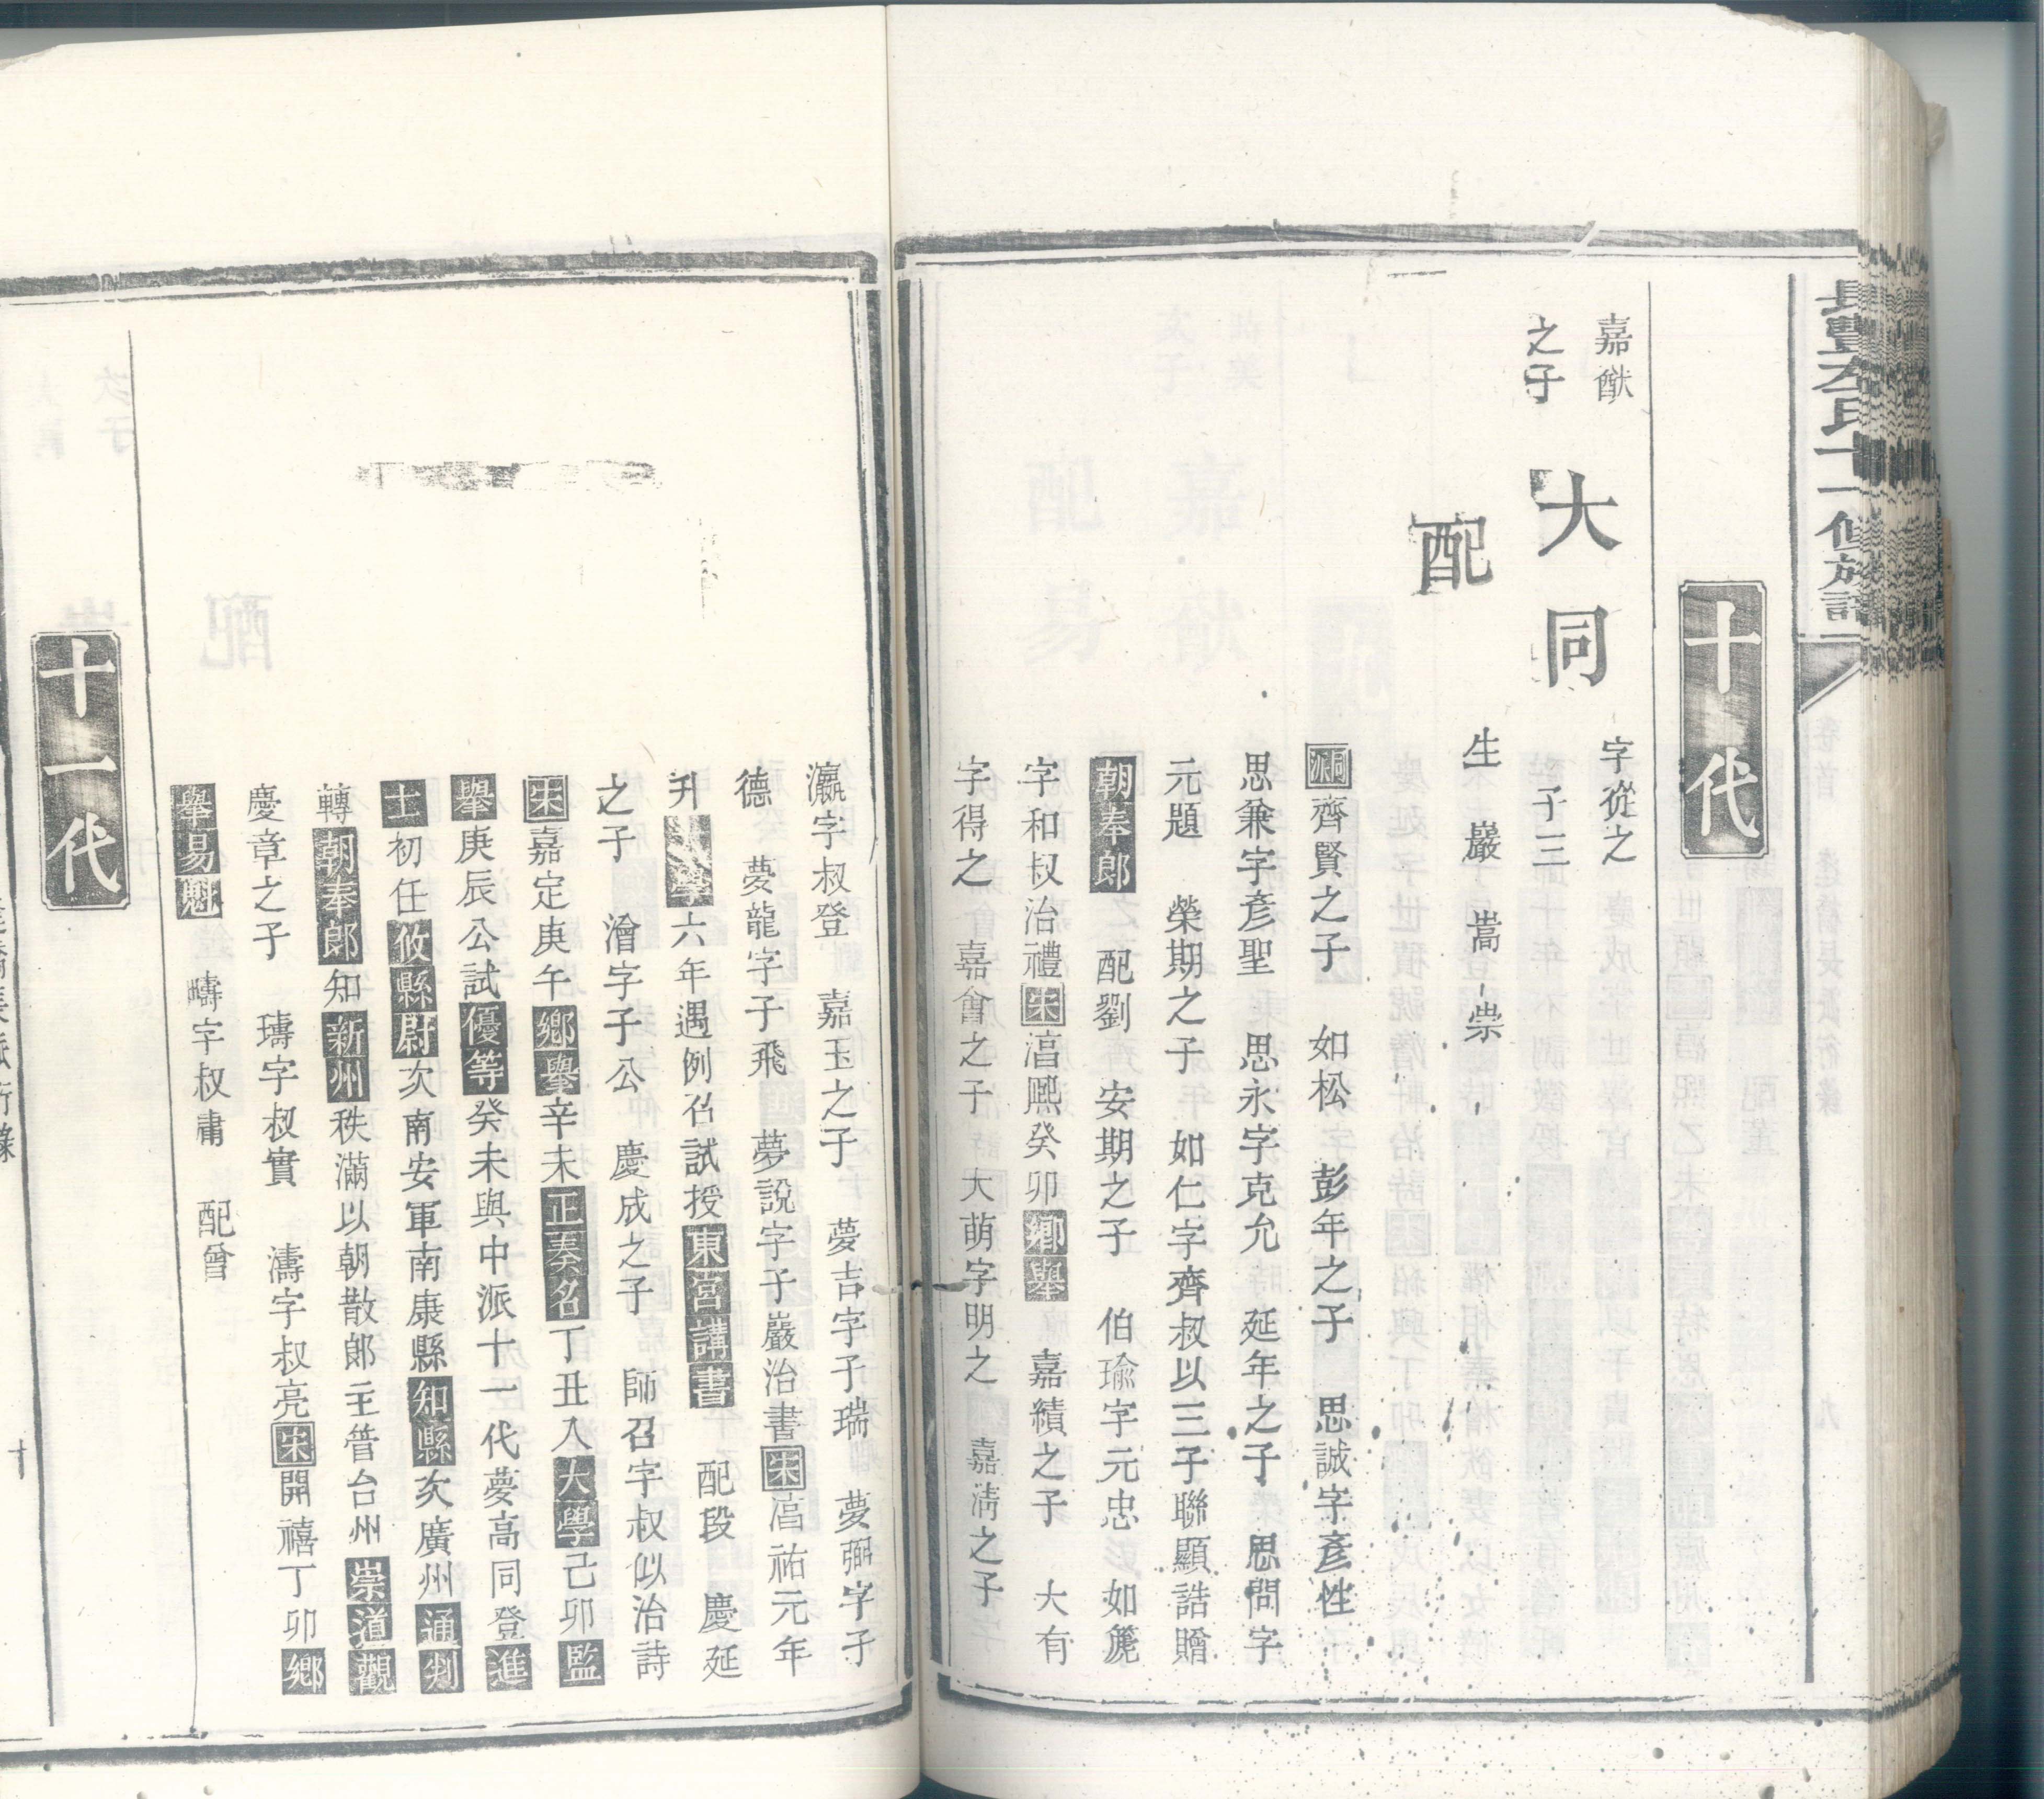 十代
嘉猷
之子
大同
字從之
子三
配
生 巖 嵩 崇
齊賢之子 如松 彭年之子 思誠字彥性
思兼字彥聖 思永字克允 延年之子 思問字
元題 榮期之子 如仁字齊叔以三子聯顯誥贈
朝奉郎 配劉 安期之子 伯瑜字元忠 如篪
字和叔治禮宋淳熙癸卯鄉舉 嘉績之子 大有
字得之 嘉會之子 大萌字明之 嘉淸之子
瀛字叔登 嘉玉之子 夢吉字子瑞 夢弼字子
德 夢龍字子飛 夢說字子巖治書宋淳祐元年
升大學六年遇例召試授東宮講書 配段 慶延
之子 澮字子公 慶成之子 師召字叔似治詩
宋嘉定庚午鄉舉辛未正奏名丁丑入大學己卯監
舉庚辰公試優等癸未與中派十一代夢高同登進
士初任攸縣尉次南安軍南康縣知縣次廣州通判
轉朝奉郎知新州秩滿以朝散郎主管台州崇道觀
慶章之子 璹字叔實 濤字叔亮宋開禧丁卯鄉
舉易魁 疇字叔肅 配曾
十一代